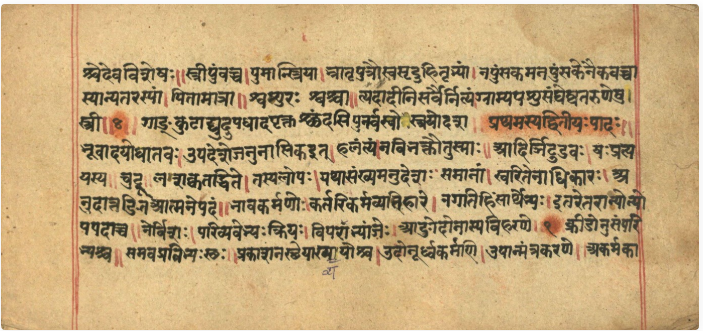 श्चेदेव विशेषः॥ स्त्री पुंवच्च । पुमान्स्त्रिया । भ्रातृपुत्रौ स्वसृदुहितृभ्यां । नपुंसकमनपुंसकेनैकवच्चा
स्यान्यतरस्यां । पितामात्रा॥ श्वशुरः श्वश्र्वा॥ त्यदादीनि सर्वैर्नित्यं । ग्राम्यपशुसंघेष्वतरुणेषु
स्त्री ४ गाङ्कुटाद्युदुपधादपृक्त छंदसि पुनर्वस्वो स्त्रयोदश ॥ प्रथमस्य द्वितीयः पादः
भूवादयो धातवः । उपदेशेजनुनासिक इत् । हलंत्यं । न विभक्तौ तुस्माः । आदिर्ञिटुडवः । षः प्रत्य
यस्य । चुटू । लशक्वतद्धिते । तस्य लोपः । यथासंख्यमनुदेशः समानां । स्वरितेनाधिकारः । अ
नुदात्तङित आत्मनेपदं । भावकर्मणोः । कर्तरि कर्मव्यतिहारे । न गतिहिंसार्थेभ्यः । इतरेतरान्योन्यो
पपदाच्च । नेर्विशः । परिव्यवेभ्यः क्रियः । विपराभ्यांजेः । आङोदोनास्यविहरणे । १ क्रीडोनुसंपरि
भ्यश्च । समवप्रविभ्यः स्थः । प्रकाशनस्थेयाख्ययोश्च । उदोनूर्ध्वकर्मणि । उपान्मंत्रकरणे । अकर्मका